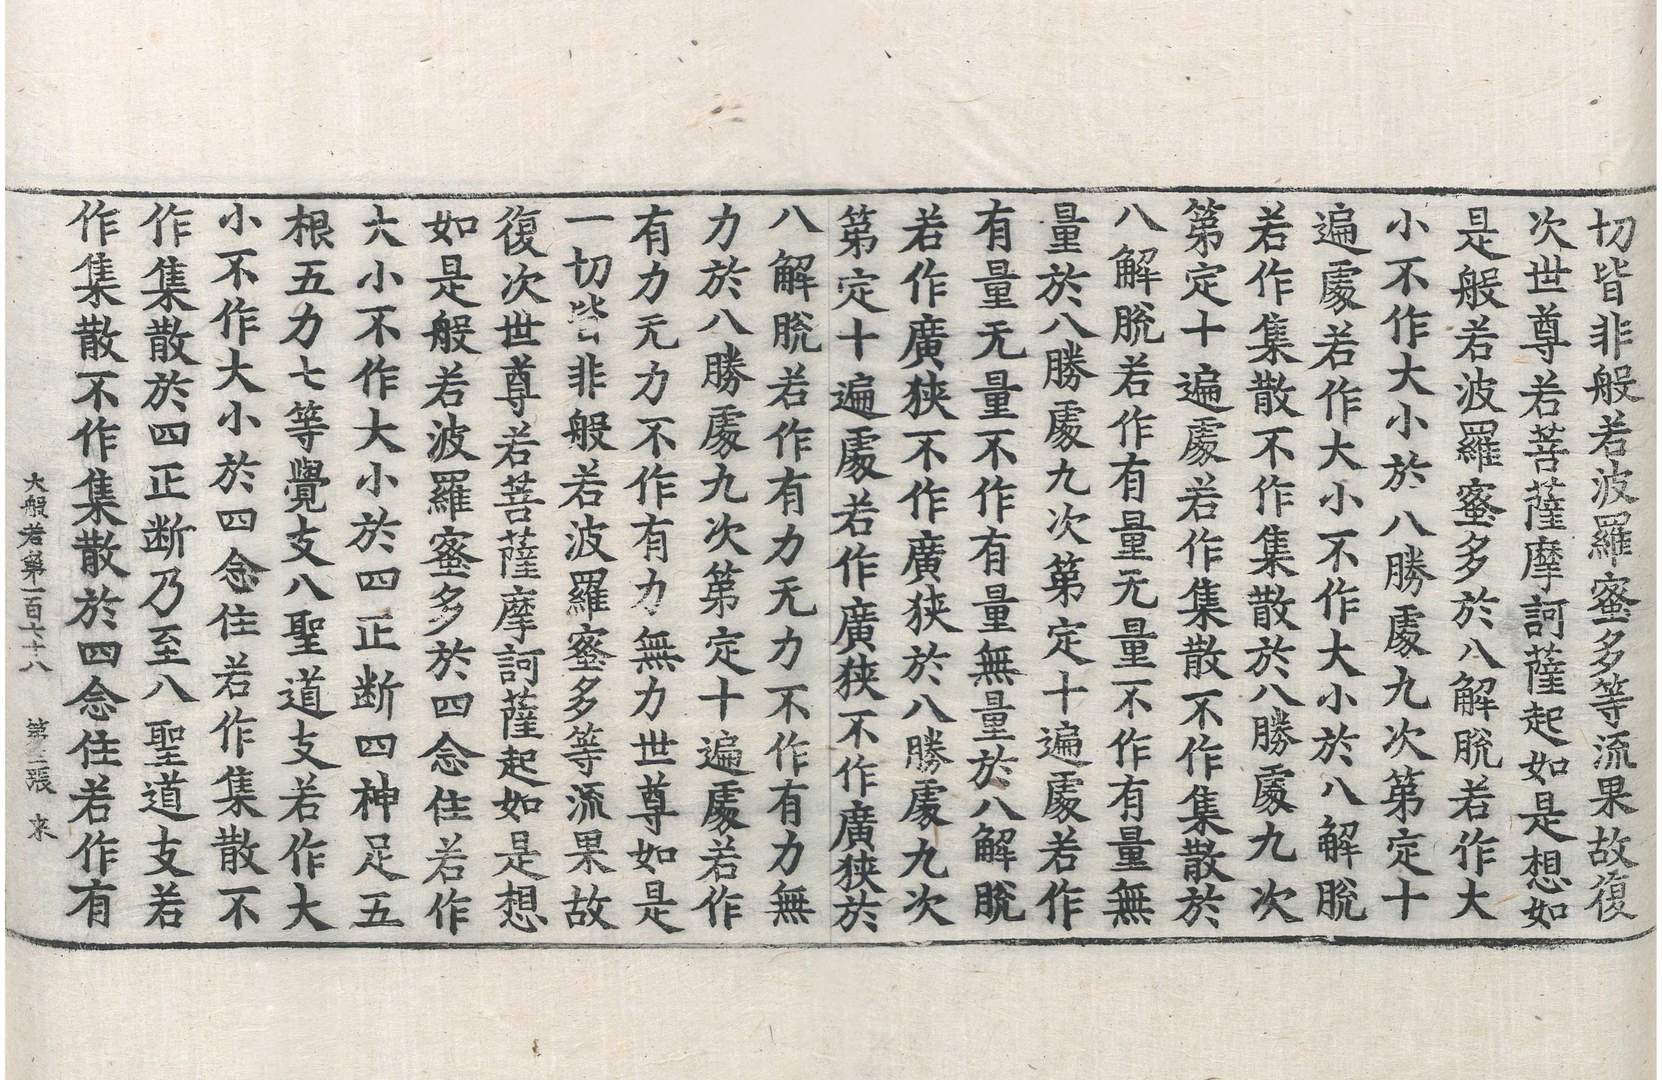 切皆非般若波羅蜜多等流果故復
次世尊若菩薩摩訶薩起如是想如
是般若波羅蜜多於八解脫若作大
小不作大小於八勝處九次第定十
遍處若作大小不作大小於八解脫
若作集散不作集散於八勝處九次
第定十遍處若作集散不作集散於
八解脫若作有量无量不作有量無
量於八勝處九次第定十遍處若作
有量无量不作有量無量於八解脫
若作廣狹不作廣狹於八勝處九次
第定十遍處若作廣狹不作廣狹於
八解脫若作有力无力不作有力無
力於八勝處九次第定十遍處若作
有力无力不作有力無力世尊如是
一切皆非般若波羅蜜多等流果故
復次世尊若菩薩摩訶薩起如是想
如是般若波羅蜜多於四念住若作
大小不作大小於四正断四神足五
根五力七等覺支八聖道支若作大
小不作大小於四念住若作集散不
作集散於四正断乃至八聖道支若
作集散不作集散於四念住若作有
大般若第一百七十八 第三張 來